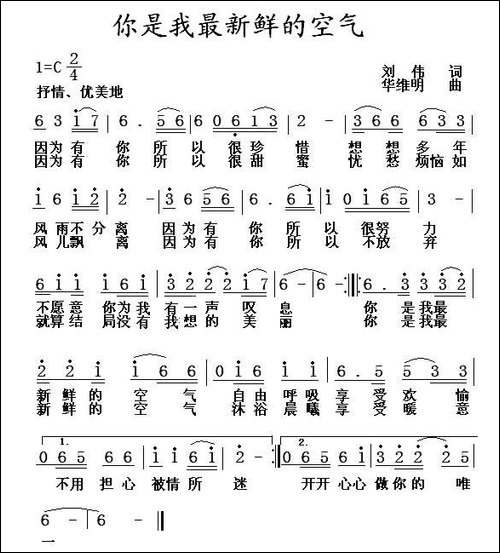 你是我最新鲜的空气
1=C 2/4
刘 伟 词
抒情、优美地
华维明 曲
6 3 i 7 | 6 . 5 6 | 6 0 6 1 3 | 2 - | 3 6 6 5 6 3
因为有 你 所 以 很 珍 惜 想 想 多 年
因为有 你 所 以 很 甜 蜜 忧 愁 烦恼 如
1 6 1 2 | 2 - | 3 6 5 6 | 6 . 6 1 | 1 0 1 6 5 | 3 -
风 雨不 分 离 因为 有 你 所 以 很努 力
风 儿飘 离 因为 有 你 所 以 不放 弃
6 i i | 3 i i 2 i | 3 2 2 2 i 7 | 6 - | 6 - :| 6 . 3 3 3 2
不愿意 你为 我 有 一 声 叹 息 你 是 我最
就算结 局没 有 我 想 的 美 丽 你 是 我最
2 2 i | i 6 6 | 0 i 6 i i i | 6 . 5 5 3 3
新 鲜 的 空 气 自 由 呼吸 享 受 欢 愉
新 鲜 的 空 气 沐 浴 晨曦 享 受 暖 意
1. 2.
0 6 5 6 6 | i i 6 i | 2 - :| 0 6 5 6 i i | 3 2 2 2 5
不用 担心 被情 所 迷 开开 心心 做你 的 唯
6 - | 6 - ||
一